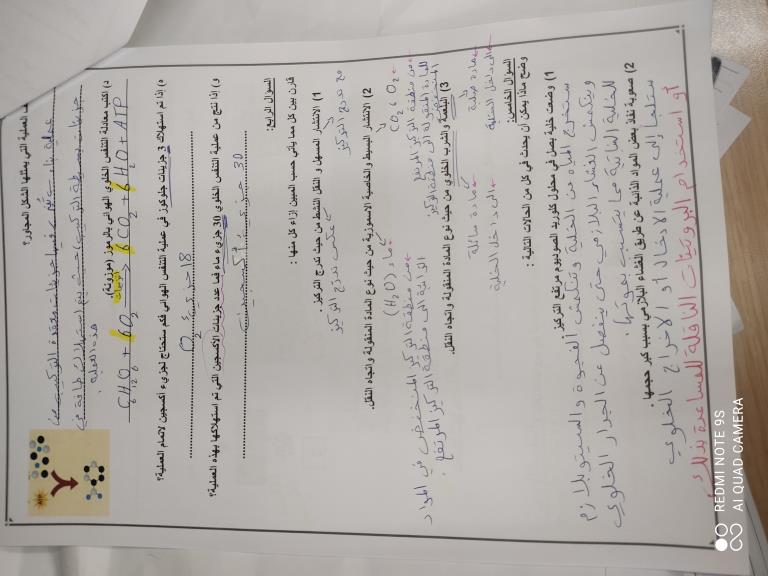 العملية التي يمثلها الشكل المجاور؟
عملية بناء يتم فيها بناء جزيئات معقدة التركيب من
جزيئات بسيطة التركيب حيث يتم استهلاك طاقة في
هذه العملية
ATP
د) اكتب معادلة التنفس الخلوي الهوائي بالرموز (موزونة).
انزيمات
C6H12O6 + 6O2 → 6CO2 + 6H2O + ATP
ه) إذا تم استهلاك 3 جزيئات جلوكوز في عملية التنفس الهوائي فكم ستحتاج لجزيء اكسجين لاتمام العملية؟
18 جزيء O2
و) إذا نتج من عملية التنفس الخلوي 30 جزيء ماء فما عدد جزيئات الأكسجين التي تم استهلاكها بهذه العملية؟
30 جزيء
السؤال الرابع:
قارن بين كل مما يأتي حسب المبين إزاء كل منها :
1) الانتشار المسهل و النقل النشط من حيث تدرج التركيز .
مع تدرج التركيز
عكس تدرج التركيز
2) الانتشار البسيط والخاصية الاسموزية من حيث نوع المادة المنقولة واتجاه النقل.
CO2 و O2
ماء (H2O)
من منطقة التركيز المرتفع
للمادة المنقولة إلى منطقة التركيز
المنخفض
من منطقة التركيز المنخفض في المواد
الذائبة الى منطقة التركيز المرتفع
3) البلعمة والشرب الخلوي من حيث نوع المادة المنقولة واتجاه النقل.
مادة صلبة
مادة سائلة
الى داخل الخلية
الى داخل الخلية
السؤال الخامس:
وضح ماذا يمكن أن يحدث في كل من الحالات التالية :
1) وضعت خلية بصل في محلول كلوريد الصوديوم مرتفع التركيز
ستخرج المياه من الخلية وتنكمش الفجوة والسيتوبلازم
وينكمش الغشاء البلازمي حتى ينفصل عن الجدار الخلوي
للخلية النباتية مما يتسبب بموتها.
2) صعوبة نفاذ بعض المواد الذائبة عن طريق الغشاء البلازمي بسبب كبر حجمها .
ستلجأ إلى عملية الادخال أو الاخراج الخلوي
أو استخدام البروتينات الناقلة للمساعدة بذلك
REDMI NOTE 9S
AI QUAD CAMERA